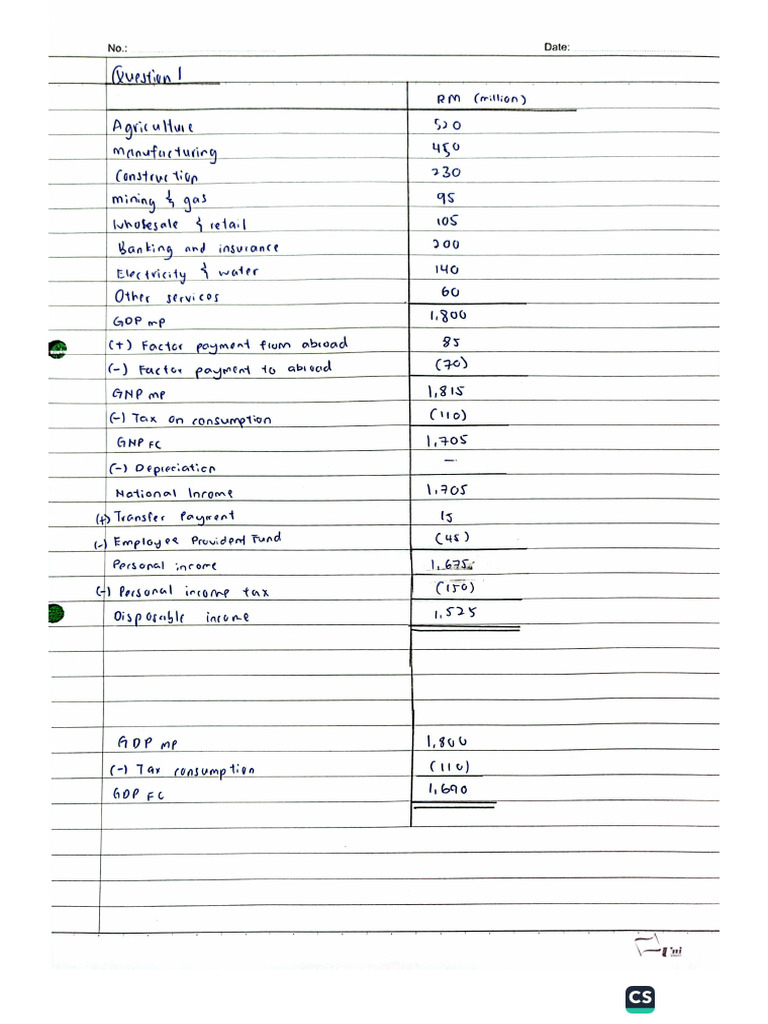 No.: Date:
Question 1
RM (million)
Agriculture 520
Manufacturing 450
Construction 230
mining & gas 95
Wholesale & retail 105
Banking and insurance 200
Electricity & water 140
Other services 60
GDP mp 1,800
(+) Factor payment from abroad 85
(-) Factor payment to abroad (70)
GNP mp 1,815
(-) Tax on consumption (110)
GNP FC 1,705
(-) Depreciation –
National Income 1,705
(+) Transfer Payment 15
(-) Employee Provident Fund (45)
Personal income 1,675
(-) Personal income tax (150)
Disposable income 1,525
GDP mp 1,800
(-) Tax consumption (110)
GDP FC 1,690
CS